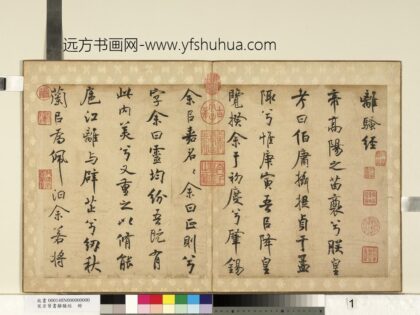 远方书画网-www.yfshuhua.com
離騷經
帝高陽之苗裔兮朕皇
考曰伯庸攝提貞于孟
陬兮惟庚寅吾以降皇
覽揆余于初度兮肇錫
余以嘉名〻余曰正則兮
字余曰靈均紛吾既有
此內美兮又重之以脩能
扈江離与辟芷兮紉秋
蘭以為佩汨余若將
1